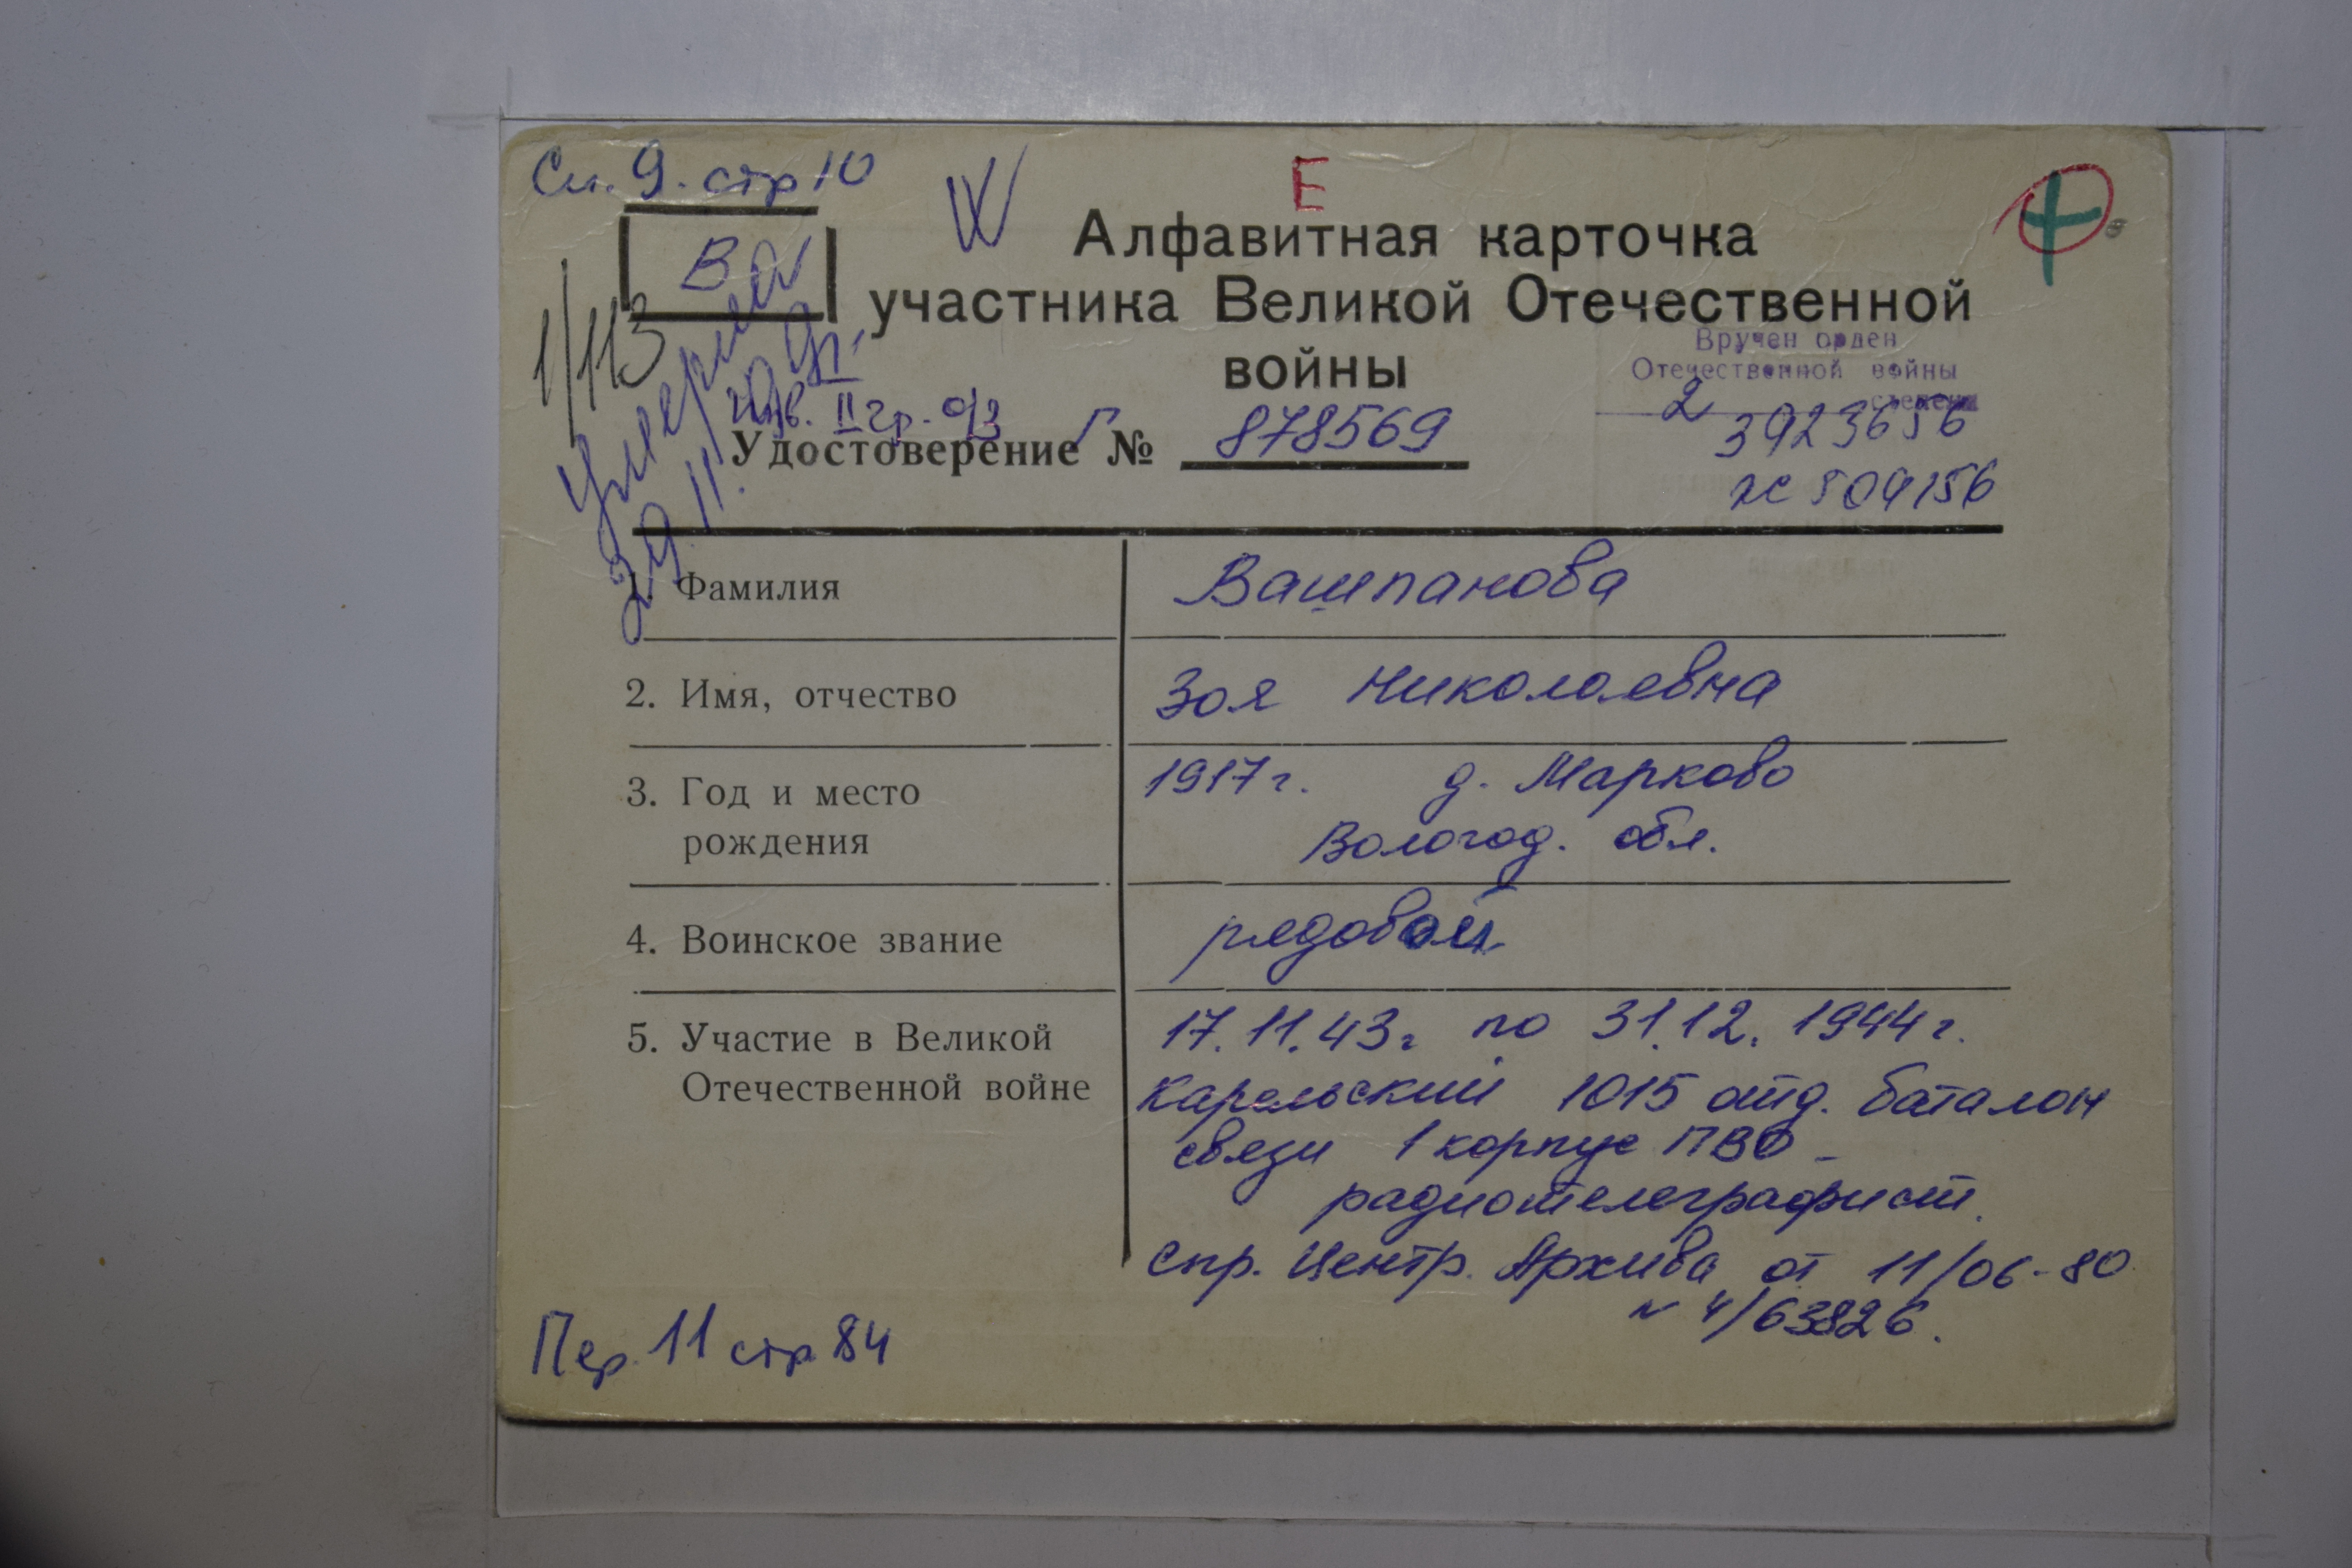 См. 9. стр 10
Е
Ва
1/113
Алфавитная карточка
участника Великой Отечественной
войны
Вручен орден
Отечественной войны
2 степени
3923656
инв. II гр. о/з
Удостоверение Г № 878569
умерла
29.11.
1. Фамилия Вашпанова
2. Имя, отчество Зоя Николаевна
3. Год и место 1917 г. д. Марково
рождения Вологод. обл.
4. Воинское звание рядовой
5. Участие в Великой 17.11.43г по 31.12.1944г.
Отечественной войне Карельский 1015 отд. баталон
связи 1 корпус ПВО -
радиотелеграфист.
Спр. Центр. Архива от 11/06-80
N 4/63826.
Пер. 11 стр 84